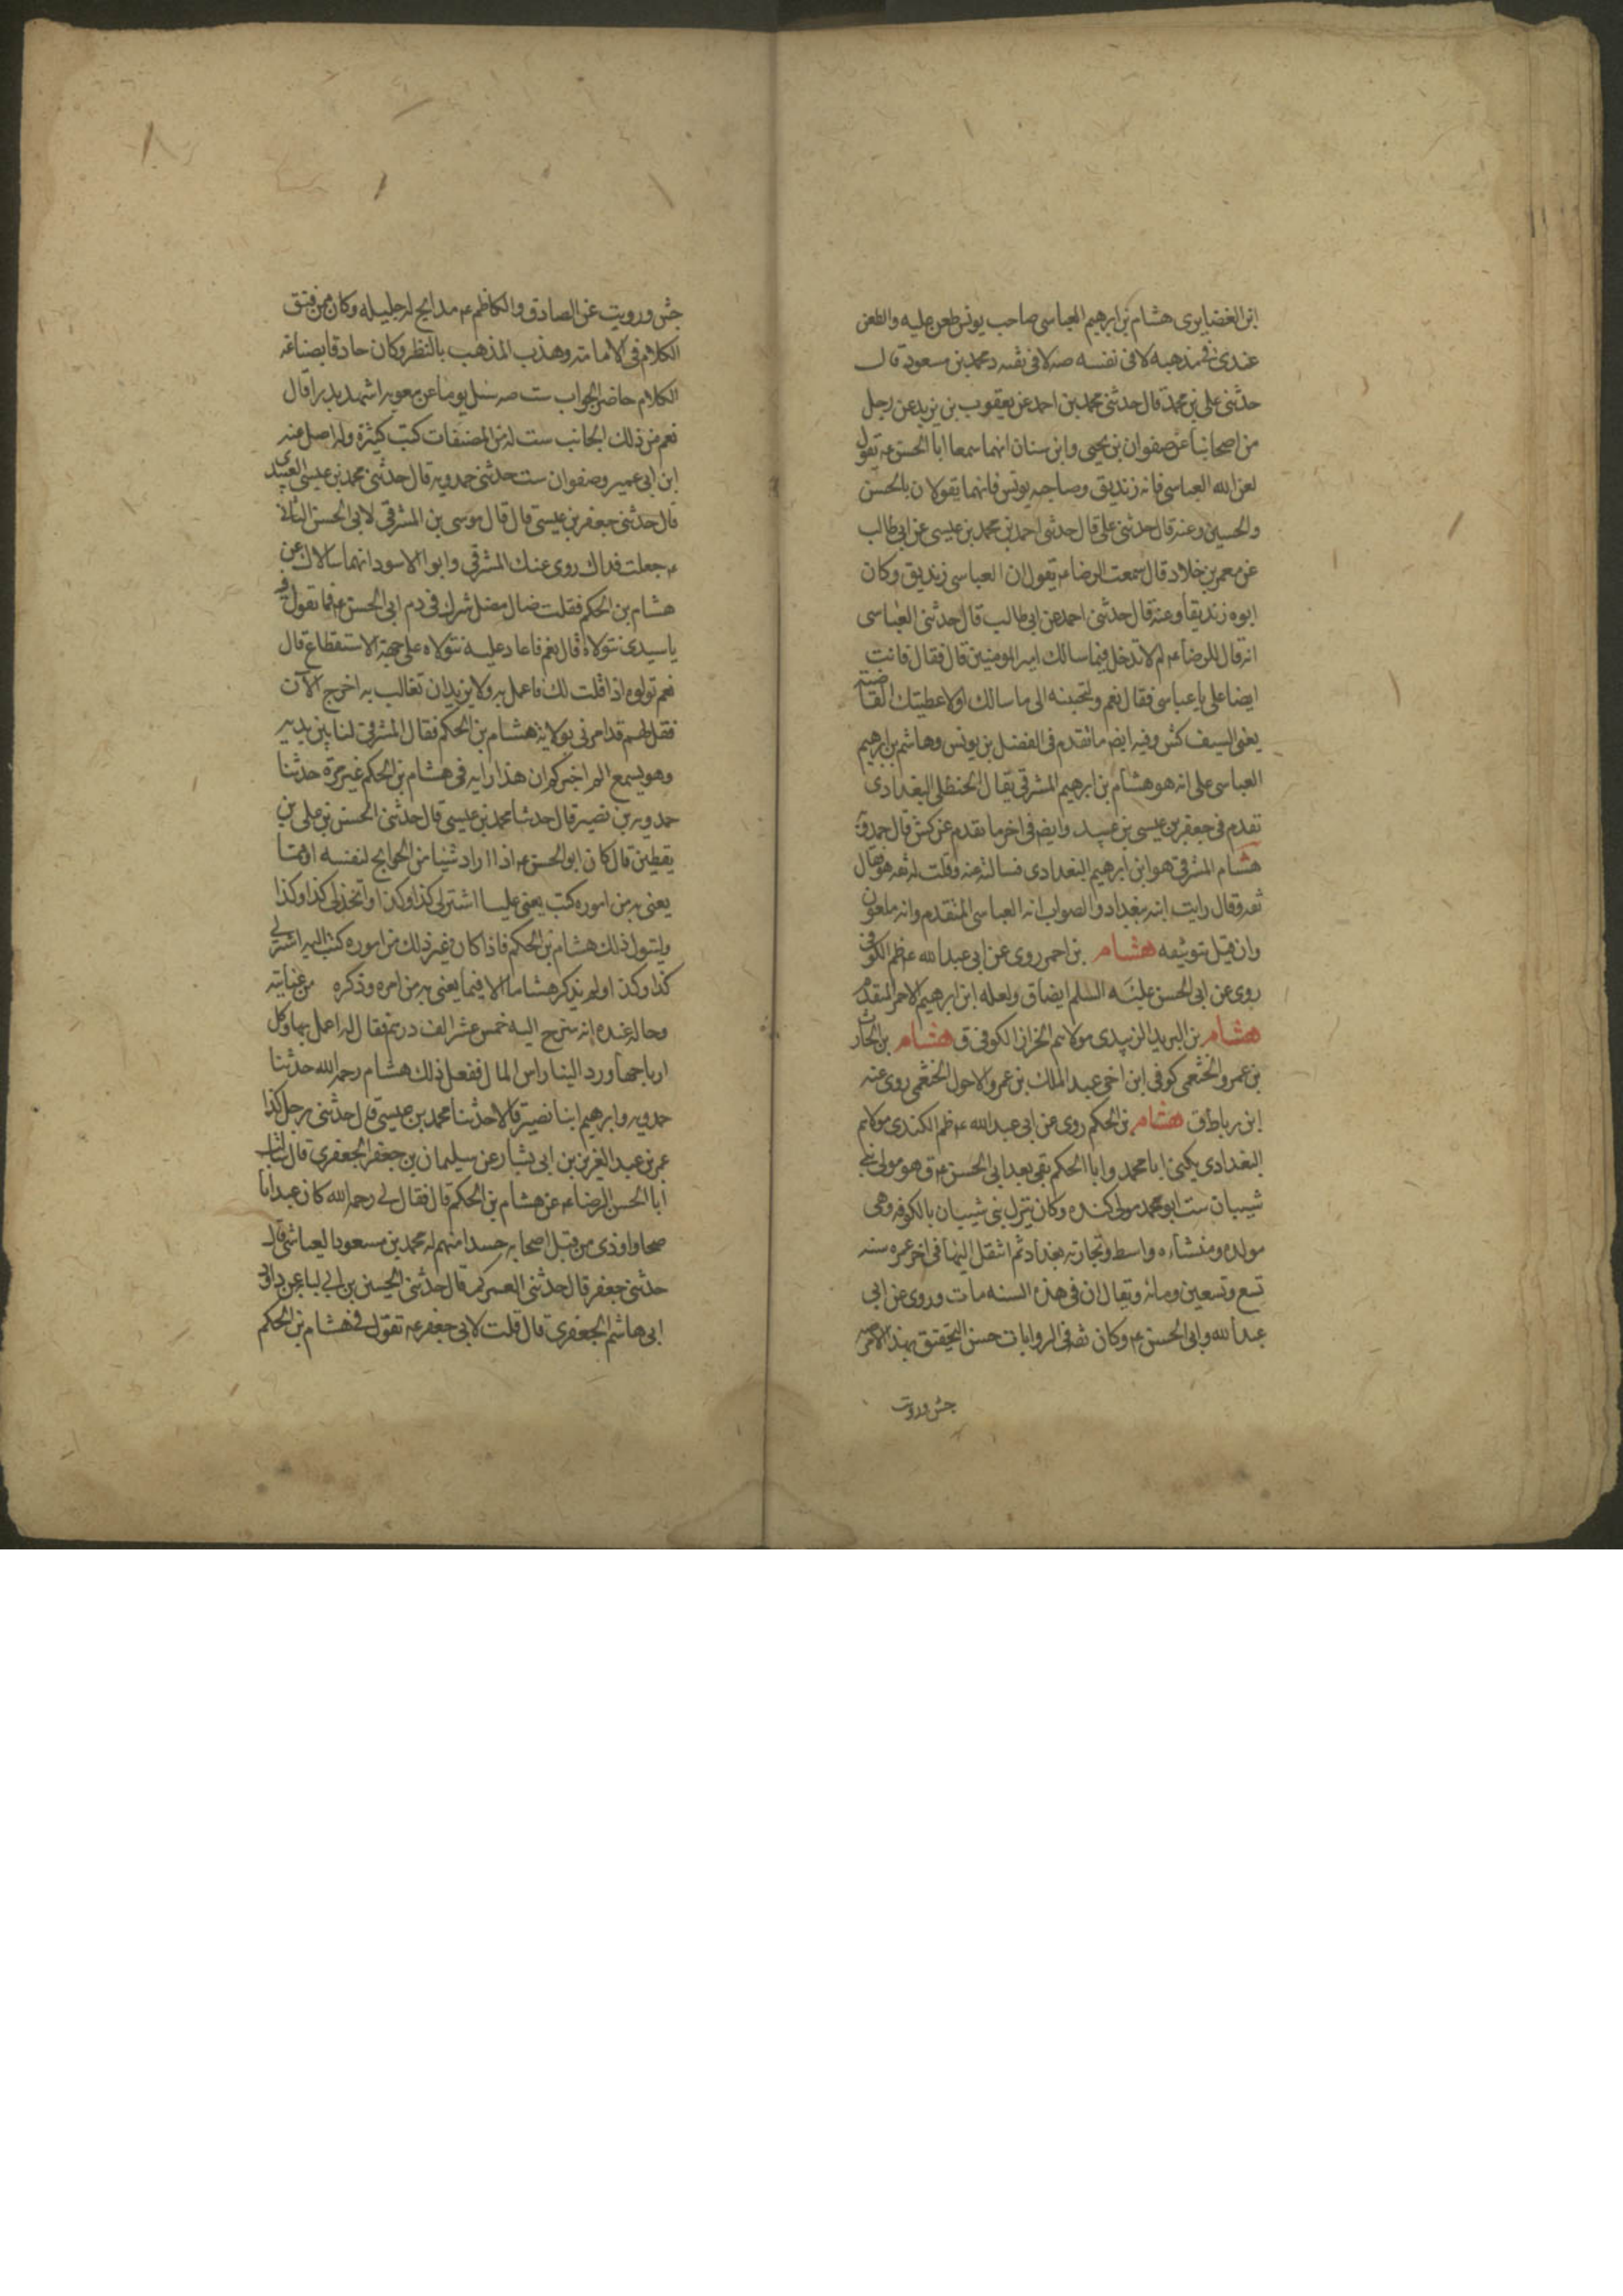 ابن الغضايرى هشام بن ابرهيم العباسى صاحب يونس طعن عليه والطعن
عندى فى مذهبه لا فى نفسه صه لا فى ثقته محمد بن مسعود قال
حدثنى على بن محمد قال حدثنى محمد بن احمد عن يعقوب بن يزيد عن رجل
من اصحابنا عن صفوان بن يحيى وابن سنان انهما سمعا ابا الحسن عه يقول
لعن الله العباسى فانه زنديق وصاحبه يونس فانهما يقولان بالحسن
والحسين وعنه قال حدثنى على قال حدثنى احمد بن محمد بن عيسى عن ابى طالب
عن معمر بن خلاد قال سمعت الرضا عه يقول ان العباسى زنديق وكان
ابوه زنديقا وعنه قال حدثنى احمد عن ابى طالب قال حدثنى العباسى
انه قال للرضا عه لم لا تدخل فيما سالك امير المومنين قال فقال فانت
ايضا على يا عباسى فقال نعم ولتجبنه الى ما سالك او لاعطيتك القاضية
يعنى السيف كش وفيه ايضه ما تقدم فى الفضل بن يونس وهاشم بن ابرهيم
العباسى على انه هو هشام بن ابرهيم المشرقى يقال الختلى البغدادى
تقدم فى جعفر بن عيسى بن عبيد وايضه فى اخر ما تقدم عن كش قال حمدويه
هشام المشرقى هو ابن ابرهيم البغدادى فسالته عنه وقلت له ثقه هو فقال
ثقه وقال رايت ابنه ببغداد والصواب انه العباسى المتقدم وانه ملعون
وان قيل بتوثيقه هشام بن احمر روى عن ابى عبد الله عه ظم الكوفى
روى عن ابى الحسن عليه السلم ايضا ق ولعله ابن ابرهيم الاحمر المتقدم
هشام بن البريد الزبيدى مولاهم الخزاز الكوفى ق هشام بن الحارث
بن عمرو الخثعمى كوفى ابن اخى عبد الملك بن عمرو الاحول الخثعمى روى عنه
ابن رباط ق هشام بن الحكم روى عن ابى عبد الله عه ظم الكندى مولاهم
البغدادى يكنى ابا محمد وابا الحكم بقى بعد ابى الحسن عه ق هو مولى بنى
شيبان ست ابو محمد مولى كنده وكان ينزل بنى شيبان بالكوفه وهى
مولده ومنشاءه واسط وتجارته بغداد ثم انتقل اليها فى اخر عمره سنه
تسع وتسعين ومائه ويقال ان فى هذه السنه مات وروى عن ابى
عبد الله وابى الحسن عه وكان ثقه فى الروايات حسن التحقيق بهذا الامر صه
جش ورويت
جش ورويت عن الصادق والكاظم عه مدايح له جليله وكان ممن فتق
الكلام فى الامامته وهذب المذهب بالنظر وكان حاذقا بصناعه
الكلام حاضر الجواب ست صه سئل يوما عن معويه اشهد بدرا قال
نعم من ذلك الجانب ست له من المصنفات كتب كثيرة وله اصل عنه
ابن ابى عمير وصفوان ست حدثنى حمدويه قال حدثنى محمد بن عيسى العبيدى
قال حدثنى جعفر بن عيسى قال قال موسى بن المشرقى لابى الحسن الثانى
عه جعلت فداك روى عنك المشرقى وابوا الاسود انهما سالاك عن
هشام بن الحكم فقلت ضال مضل شرك فى دم ابى الحسن عه فما تقول فيه
يا سيدى نتولاه قال نعم فاعاد عليه نتولاه على جهة الاستقطاع قال
نعم تولوه اذا قلت لك فاعمل به ولا يريدان تغالب به اخرج الآن
فقل لهم قد امرنى بولاية هشام بن الحكم فقال المشرقى لنا بين يديه
وهو يسمع الم اخبركم ان هذا رايه فى هشام بن الحكم غير مرة حدثنا
حمدويه بن نصير قال حدثنا محمد بن عيسى قال حدثنى الحسن بن على بن
يقطين قال كان ابو الحسن عه اذا اراد شيئا من الحوايج لنفسه او مما
يعنى به من اموره كتب يعنى عليا اشتر لى كذا وكذا او اتخذ لى كذا وكذا
وليتول ذلك هشام بن الحكم فاذا كان غير ذلك من اموره كتب اليه اشتر لى
كذا وكذا ولم يذكر هشاما الا فيما يعنى به من امره وذكره من عنايته
وحاله عنده انه سرح اليه خمس عشر الف درهم فقال له اعمل بها وكل
ارباحها ورد الينا راس المال ففعل ذلك هشام رحمه الله حدثنا
حمدويه وابرهيم ابنا نصير قالا حدثنا محمد بن عيسى قال حدثنى رجل كذا
عمر بن عبد العزيز بن ابى بشار عن سليمان بن جعفر الجعفرى قال سالت
ابا الحسن الرضا عه عن هشام بن الحكم قال فقال لى رحمه الله كان عبدا نا
صحا واوذى من قبل اصحابه حسدا منهم له محمد بن مسعود العياشى قال
حدثنى جعفر قال حدثنى العمركى قال حدثنى الحسين بن ابى لبابه عن داود
ابى هاشم الجعفرى قال قلت لابى جعفر عه تقول فى هشام بن الحكم